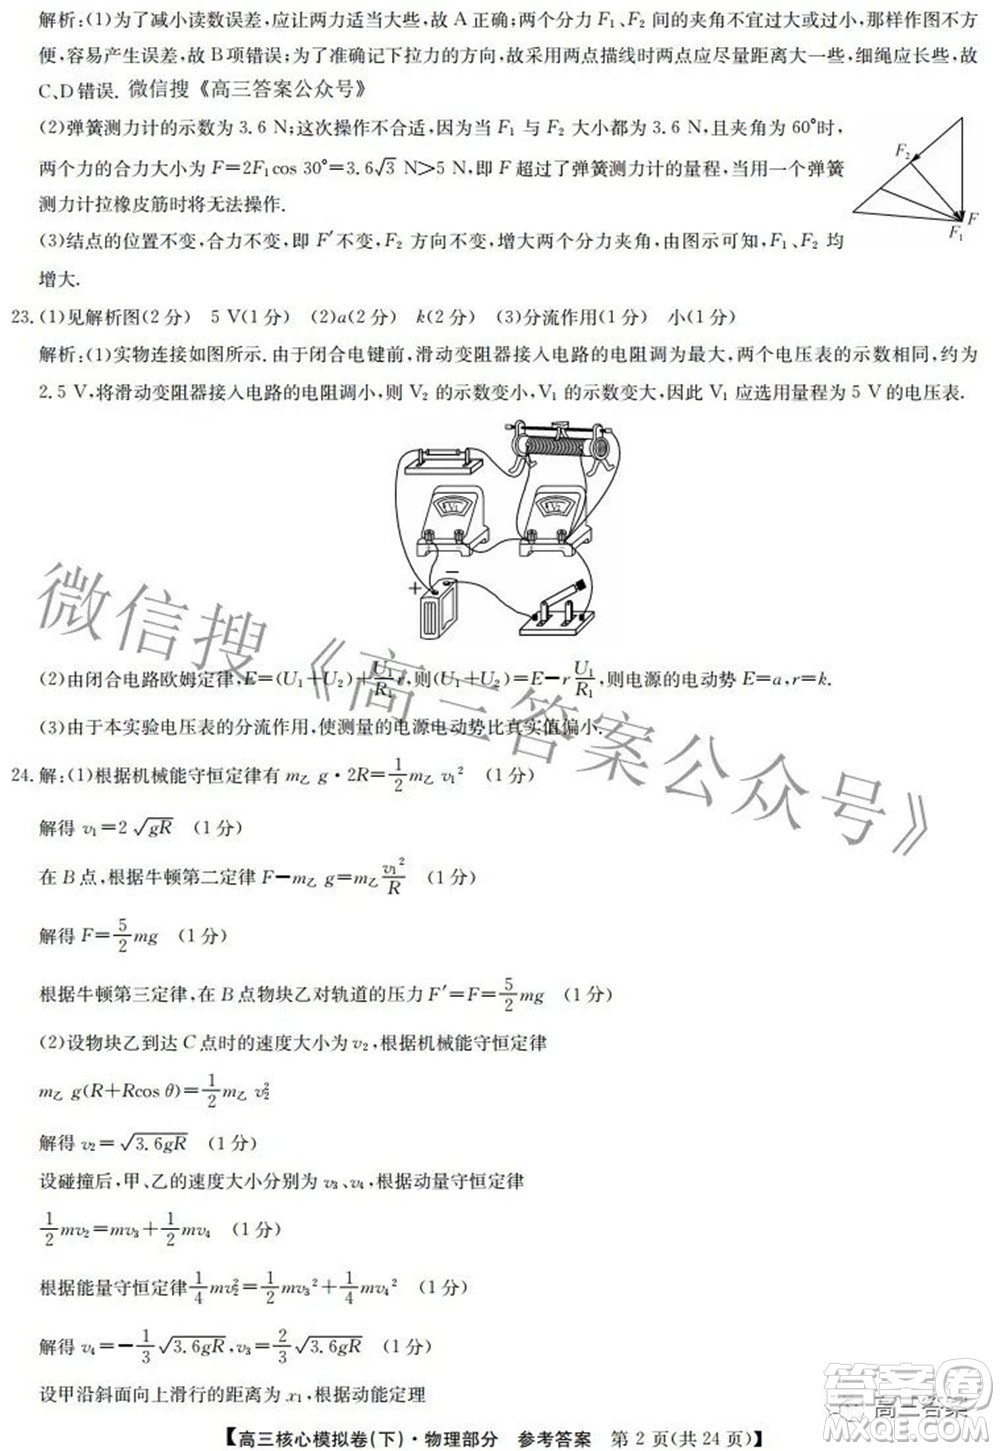 解析:(1)为了减小读数误差,应让两力适当大一些,故 A 正确;两个分力 F₁、F₂ 间的夹角不宜过大或过小,那样作图不方
便,容易产生误差,故 B 项错误;为了准确记下拉力的方向,故采用两点描线时两点应尽量距离大一些,细绳应长些,故
C、D 错误. 微信搜《高三答案公众号》
(2)弹簧测力计的示数为 3.6 N;这次操作不合适,因为当 F₁ 与 F₂ 大小都为 3.6 N,且夹角为 60°时,
两个力的合力大小为 F=2F₁cos 30°=3.6√3 N>5 N,即 F 超过了弹簧测力计的量程,当用一个弹簧
测力计拉橡皮筋时将无法操作.
F₂
F
F₁
(3)结点的位置不变,合力不变,即 F′不变,F₂ 方向不变,增大两个分力夹角,由图示可知,F₁、F₂ 均
增大.
23.(1)见解析图(2 分) 5 V(1 分) (2)a(2 分) k(2 分) (3)分流作用(1 分) 小(1 分)
解析:(1)实物连接如图所示.由于闭合电键前,滑动变阻器接入电路的电阻调为最大,两个电压表的示数相同,约为
2.5 V,将滑动变阻器接入电路的电阻调小,则 V₂ 的示数变小,V₁ 的示数变大,因此 V₁ 应选用量程为 5 V 的电压表.
+ −
(2)由闭合电路欧姆定律,E=(U₁+U₂)+U₁/R₁ r,则(U₁+U₂)=E−r U₁/R₁,则电源的电动势 E=a,r=k.
(3)由于本实验电压表的分流作用,使测量的电源电动势比真实值偏小.
24.解:(1)根据机械能守恒定律有 m乙 g·2R=1/2 m乙 v₁² (1 分)
解得 v₁=2√gR (1 分)
在 B 点,根据牛顿第二定律 F−m乙 g=m乙 v₁²/R (1 分)
解得 F=5/2 mg (1 分)
根据牛顿第三定律,在 B 点物块乙对轨道的压力 F′=F=5/2 mg (1 分)
(2)设物块乙到达 C 点时的速度大小为 v₂,根据机械能守恒定律
m乙 g(R+Rcos θ)=1/2 m乙 v₂²
解得 v₂=√3.6gR (1 分)
设碰撞后,甲、乙的速度大小分别为 v₃、v₄,根据动量守恒定律
1/2 mv₂=mv₃+1/2 mv₄ (1 分)
根据能量守恒定律 1/4 mv₂²=1/2 mv₃²+1/4 mv₄² (1 分)
解得 v₄=−1/3 √3.6gR,v₃=2/3 √3.6gR (1 分)
设甲沿斜面向上滑行的距离为 x₁,根据动能定理
【高三核心模拟卷(下)·物理部分 参考答案 第 2 页(共 24 页)】
微信搜《高三答案公众号》
答案圈
高三答案